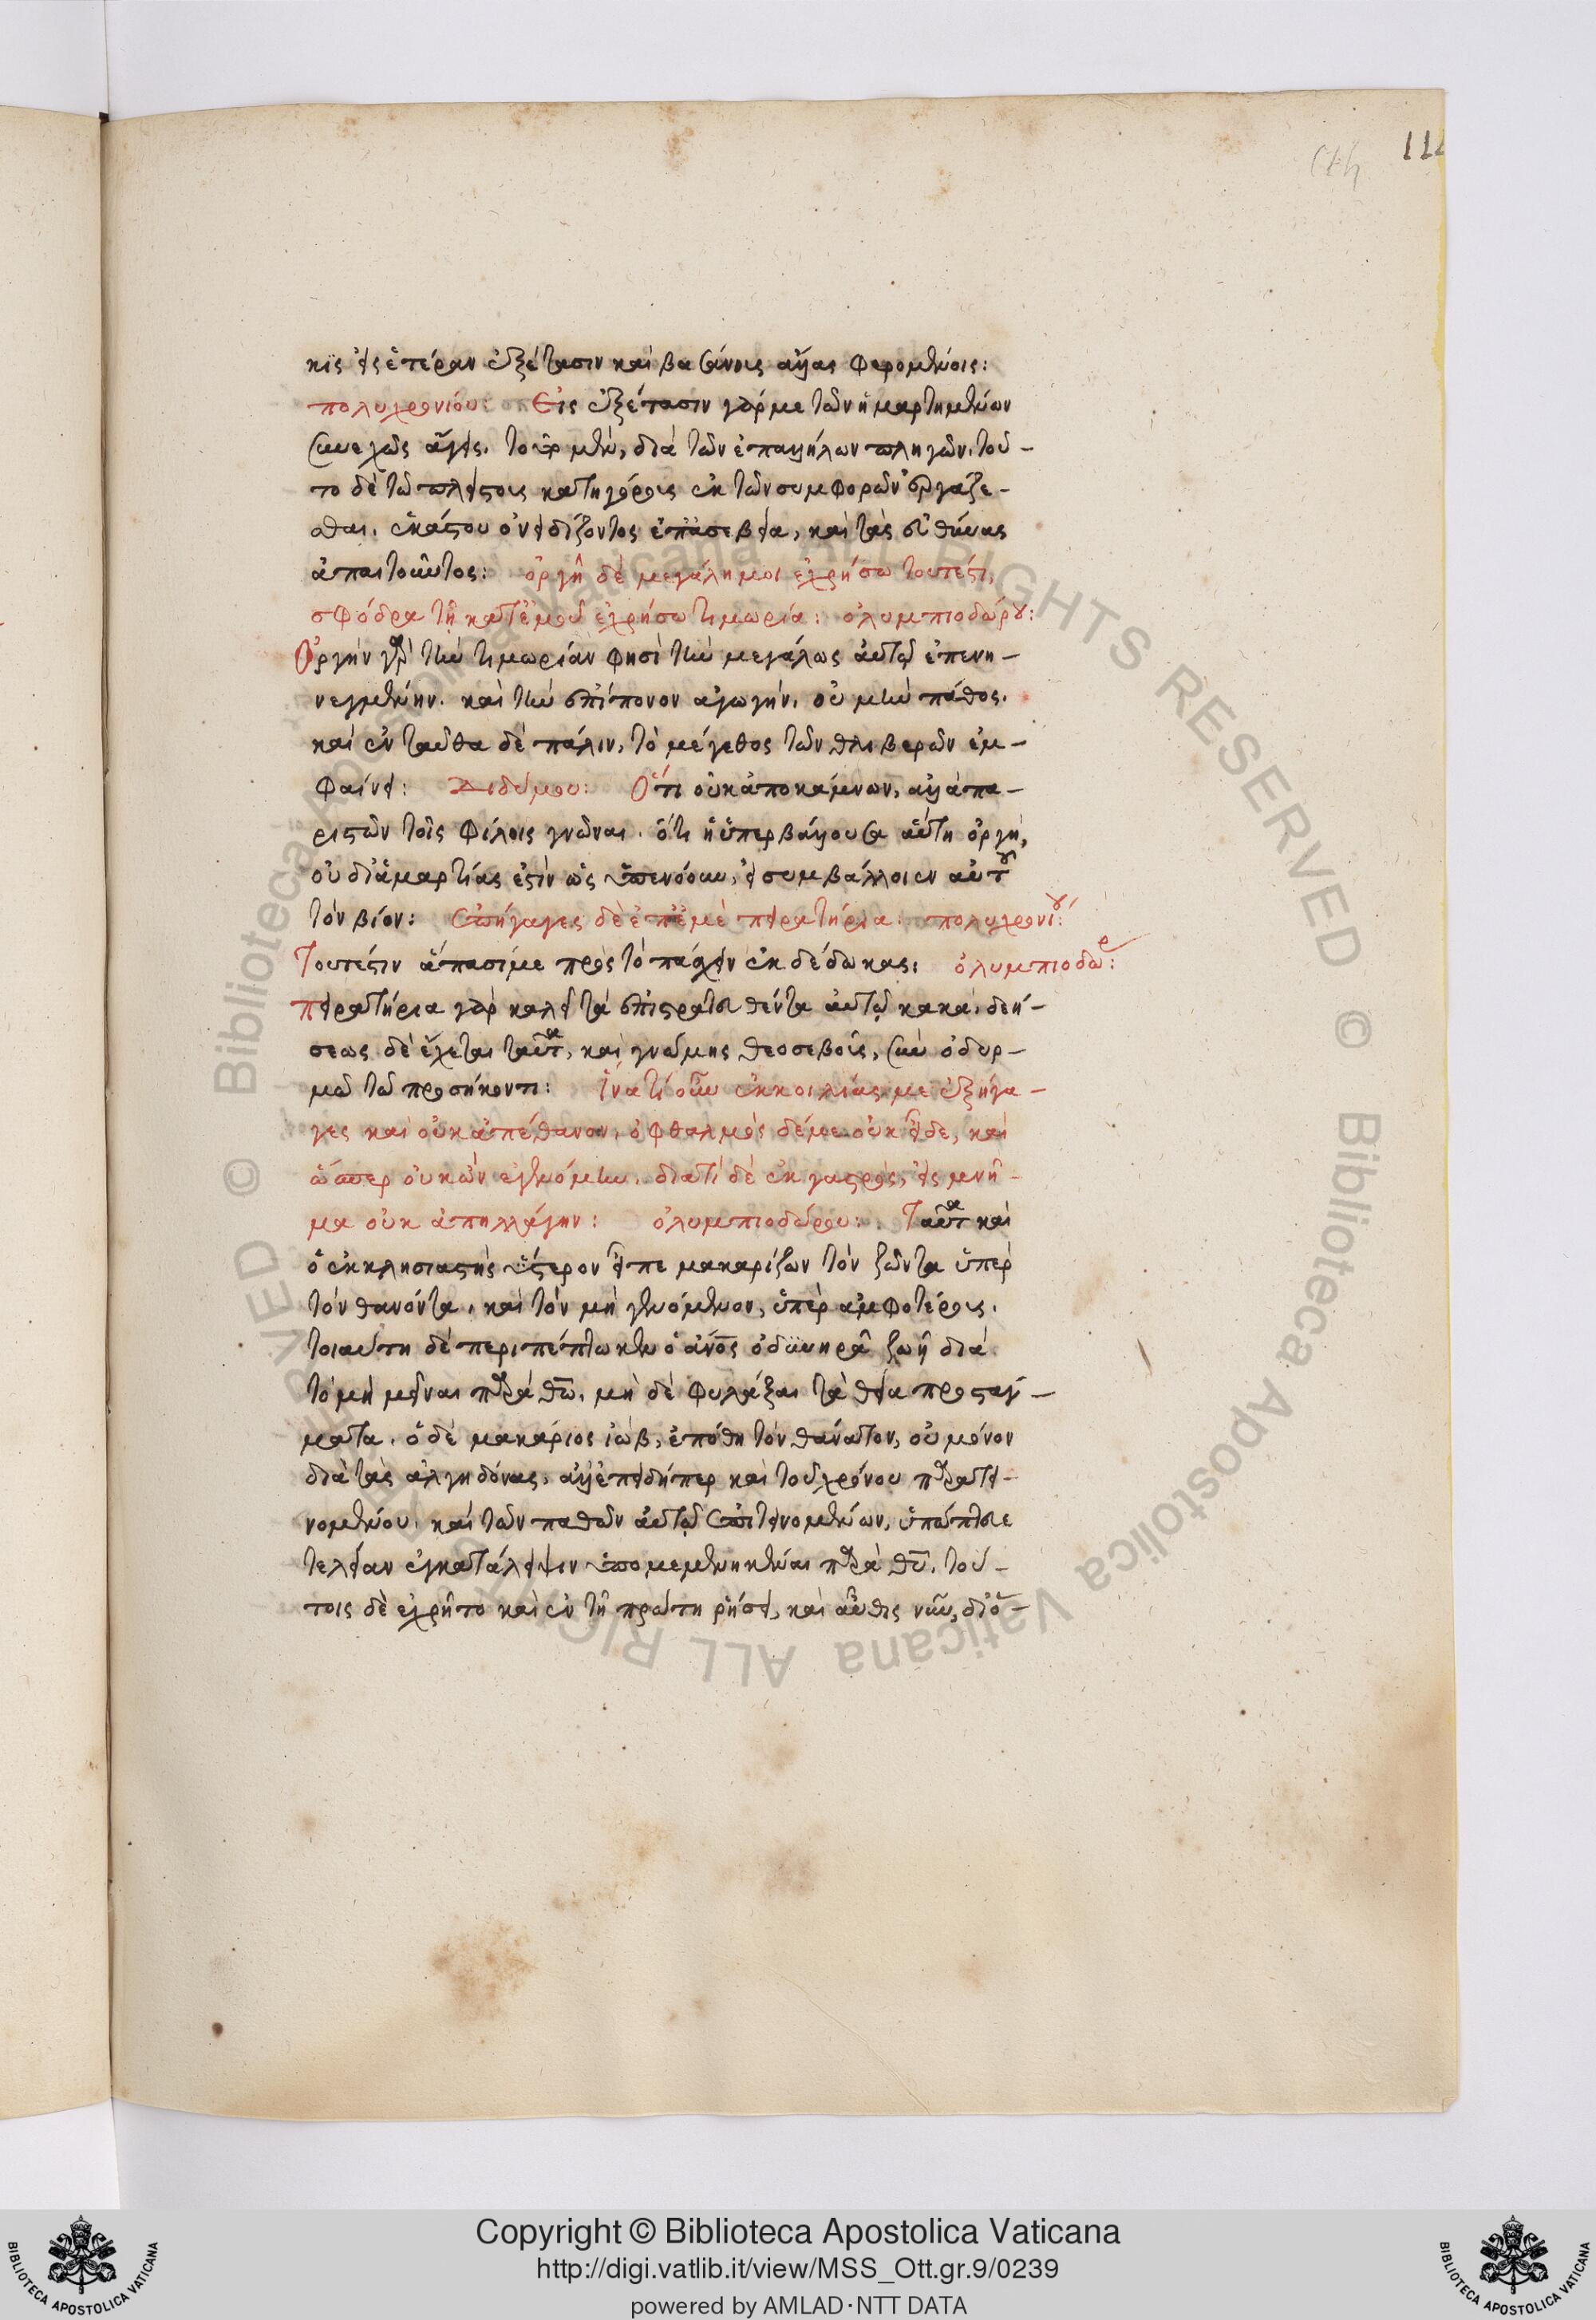 114
κις εἰς ἑτέραν ἐξέτασιν καὶ βασάνοις ἄλλας φερομένοις:
πολυχρονίου: Εἰς ἐξέτασιν γάρ με τῶν ἡμαρτημένων
συνεχῶς ἄγεις. τοῦτο μὲν, διὰ τῶν ἐπαλλήλων πληγῶν. τοῦ-
το δὲ τῶ πλείστοις κατηγόροις ἐκ τῶν συμφορῶν ἐργάζε-
σθαι. ἑκάστου ὀνειδίζοντος ἐπ' ἀσεβεία, καὶ τὰς εὐθύνας
ἀπαιτοῦντος: ὀργῆ δὲ μεγάλη μοι ἐχρήσω τουτέστι,
σφόδρα τῆ κατ' ἐμοῦ ἐχρήσω τιμωρία: ὀλυμπιοδώρου:
Ὀργὴν γὰρ τὴν τιμωρίαν φησὶ τὴν μεγάλως αὐτῷ ἐπενη-
νεγμένην. καὶ τὴν ἐπίπονον ἀγωγήν. οὐ μὴν πάθος.
καὶ ἐνταῦθα δὲ πάλιν, τὸ μέγεθος τῶν θλιβερῶν ἐμ-
φαίνει: Διδύμου: Ὅτι οὐκ ἀποκάμνων, ἀλλὰ πα-
ριστῶν τοῖς φίλοις γνῶναι. ὅτι ἡ ὑπερβάλλουσα αὕτη ὀργὴ,
οὐ δι' ἁμαρτίας ἐστὶν ὡς ὑπενόουν, εἰ συμβάλλοιεν αὐτοῦ
τὸν βίον: ἐπήγαγες δὲ ἐπ' ἐμὲ πειρατήρια: πολυχρονίου:
Τουτέστιν ἅπασί με πρὸς τὸ πάσχειν ἐκδέδωκας: ὀλυμπιοδώρ:
πειρατήρια γὰρ καλεῖ τὰ ἐπιστρατευθέντα αὐτῷ κακά. δεή-
σεως δὲ ἔχεται ταῦτα, καὶ γνώμης θεοσεβοῦς, σὺν ὀδυρ-
μῶ τῶ προσήκοντι: ἵνα τί οὖν ἐκ κοιλίας με ἐξήγα-
γες καὶ οὐκ ἀπέθανον, ὀφθαλμὸς δέ με οὐκ εἶδε, καὶ
ὥσπερ οὐκ ὢν ἐγενόμην. διατί δὲ ἐκ γαστρὸς, εἰς μνῆ-
μα οὐκ ἀπηλλάγην: ὀλυμπιοδώρου: Ταῦτα καὶ
ὁ ἐκκλησιαστὴς ὕστερον εἶπε μακαρίζων τὸν ζῶντα ὑπὲρ
τὸν θανόντα. καὶ τὸν μὴ γενόμενον, ὑπὲρ ἀμφοτέροις.
τοιαύτη δὲ περιπέπτωκεν ὁ ἄνος ὀδυνηρᾶ ζωῆ διὰ
τὸ μὴ μεῖναι παρὰ θῶ. μὴ δὲ φυλάξαι τὰ θεῖα προστάγ-
ματα. ὁ δὲ μακάριος ἰὼβ, ἐπόθη τὸν θάνατον, οὐ μόνον
διὰ τὰς ἀλγηδόνας. ἀλλ' ἐπειδήπερ καὶ τοῦ χρόνου παρατει-
νομένου. καὶ τῶν παθῶν αὐτῷ ἐπιτεινομένων, ὑπώπτευε
τελείαν ἐγκατάλειψιν ὑπομεμενηκέναι παρὰ θυ. τού-
τοις δὲ ἐχρῆτο καὶ ἐν τῆ πρώτη ρήσει, καὶ αὖθις νῦν, δι' ὃ-
Copyright © Biblioteca Apostolica Vaticana
http://digi.vatlib.it/view/MSS_Ott.gr.9/0239
powered by AMLAD·NTT DATA